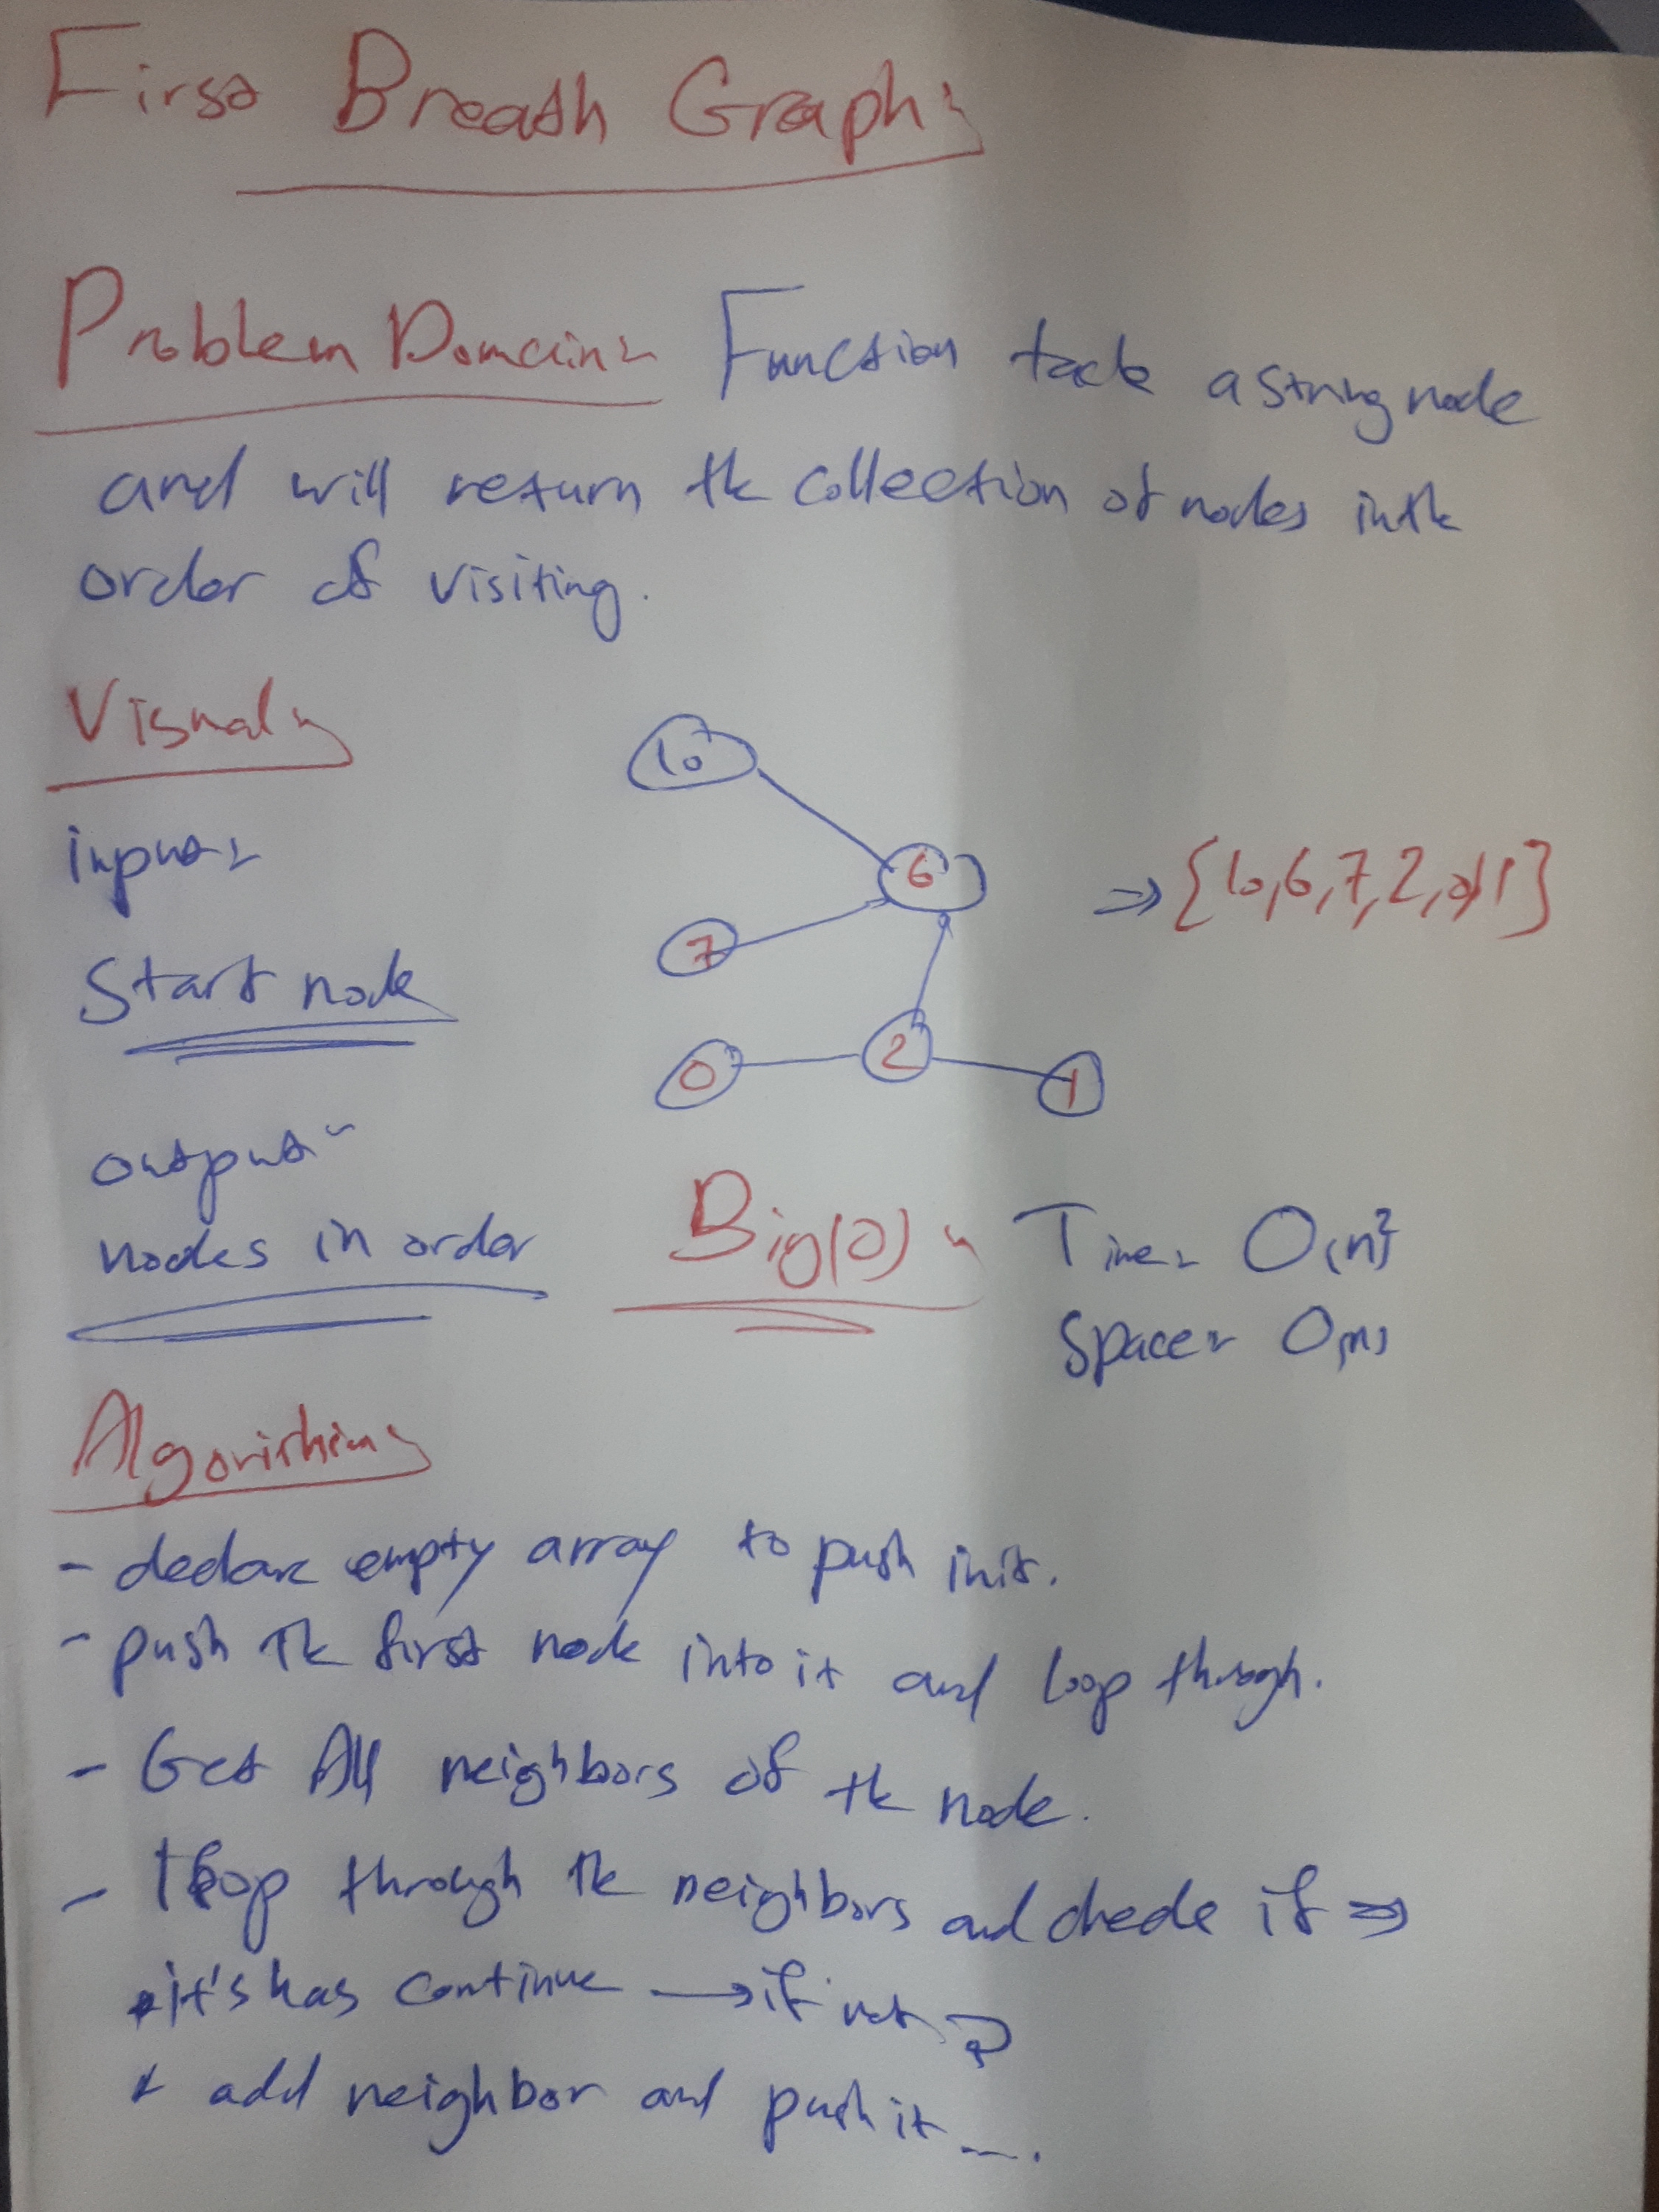 First Breath Graph:
Problem Domain: Function take a string node
and will return the collection of nodes in the
order of visiting.
Visual:
input:
Start node
output:
nodes in order
10
6
7
2
0
1
⇒ {10,6,7,2,0,1}
Big(O): Time: O(n²)
Space: O(n)
Algorithim:
- declare empty array to push in it.
- push The first node into it and loop through.
- Get All neighbors of the node.
- loop through the neighbors and check if ⇒
* it's has continue → if not
* add neighbor and push it ....